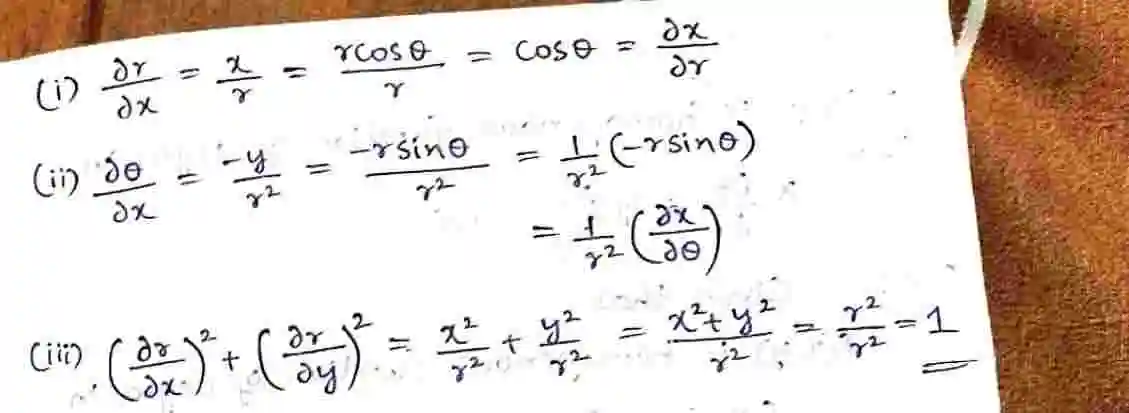 (i) ∂r/∂x = x/r = rcosθ/r = cosθ = ∂x/∂r
(ii) ∂θ/∂x = -y/r² = -rsinθ/r² = 1/r² (-rsinθ)
= 1/r² (∂x/∂θ)
(iii) (∂r/∂x)² + (∂r/∂y)² = x²/r² + y²/r² = x²+y²/r² = r²/r² = 1